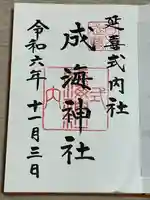 延喜式内社
成海神社
令和六年十一月三日